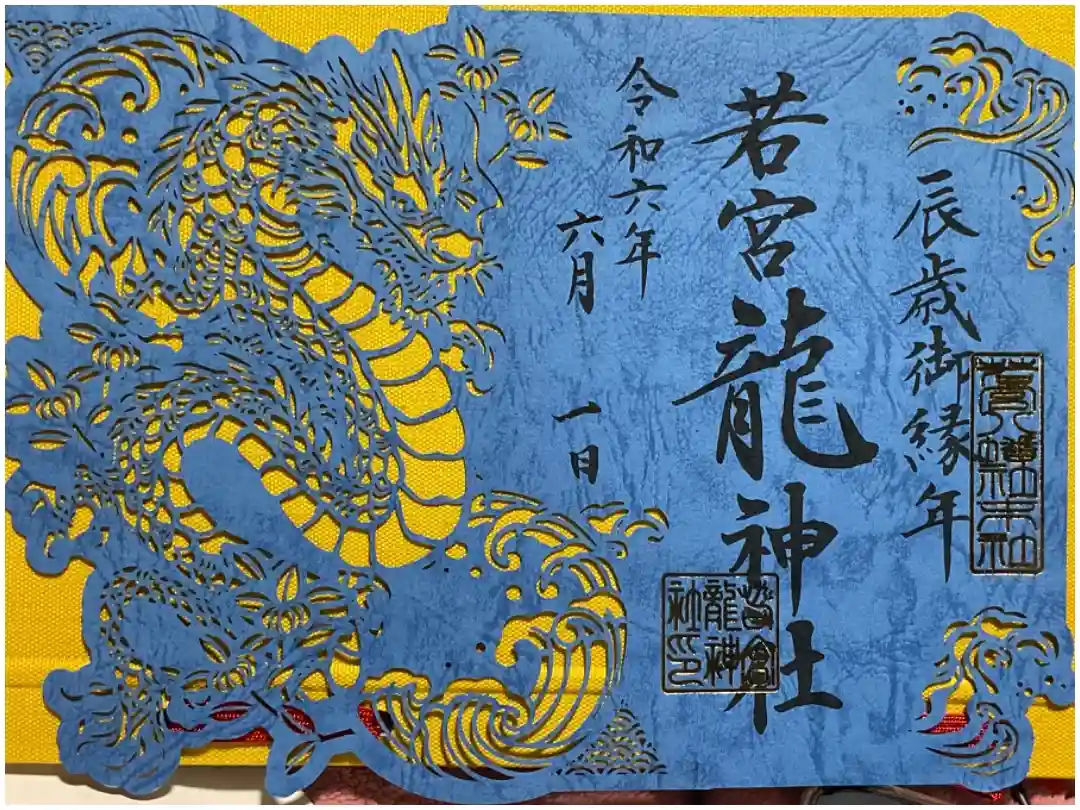 辰歳御縁年
若宮龍神社
若宮龍神社印
令和六年
六月一日